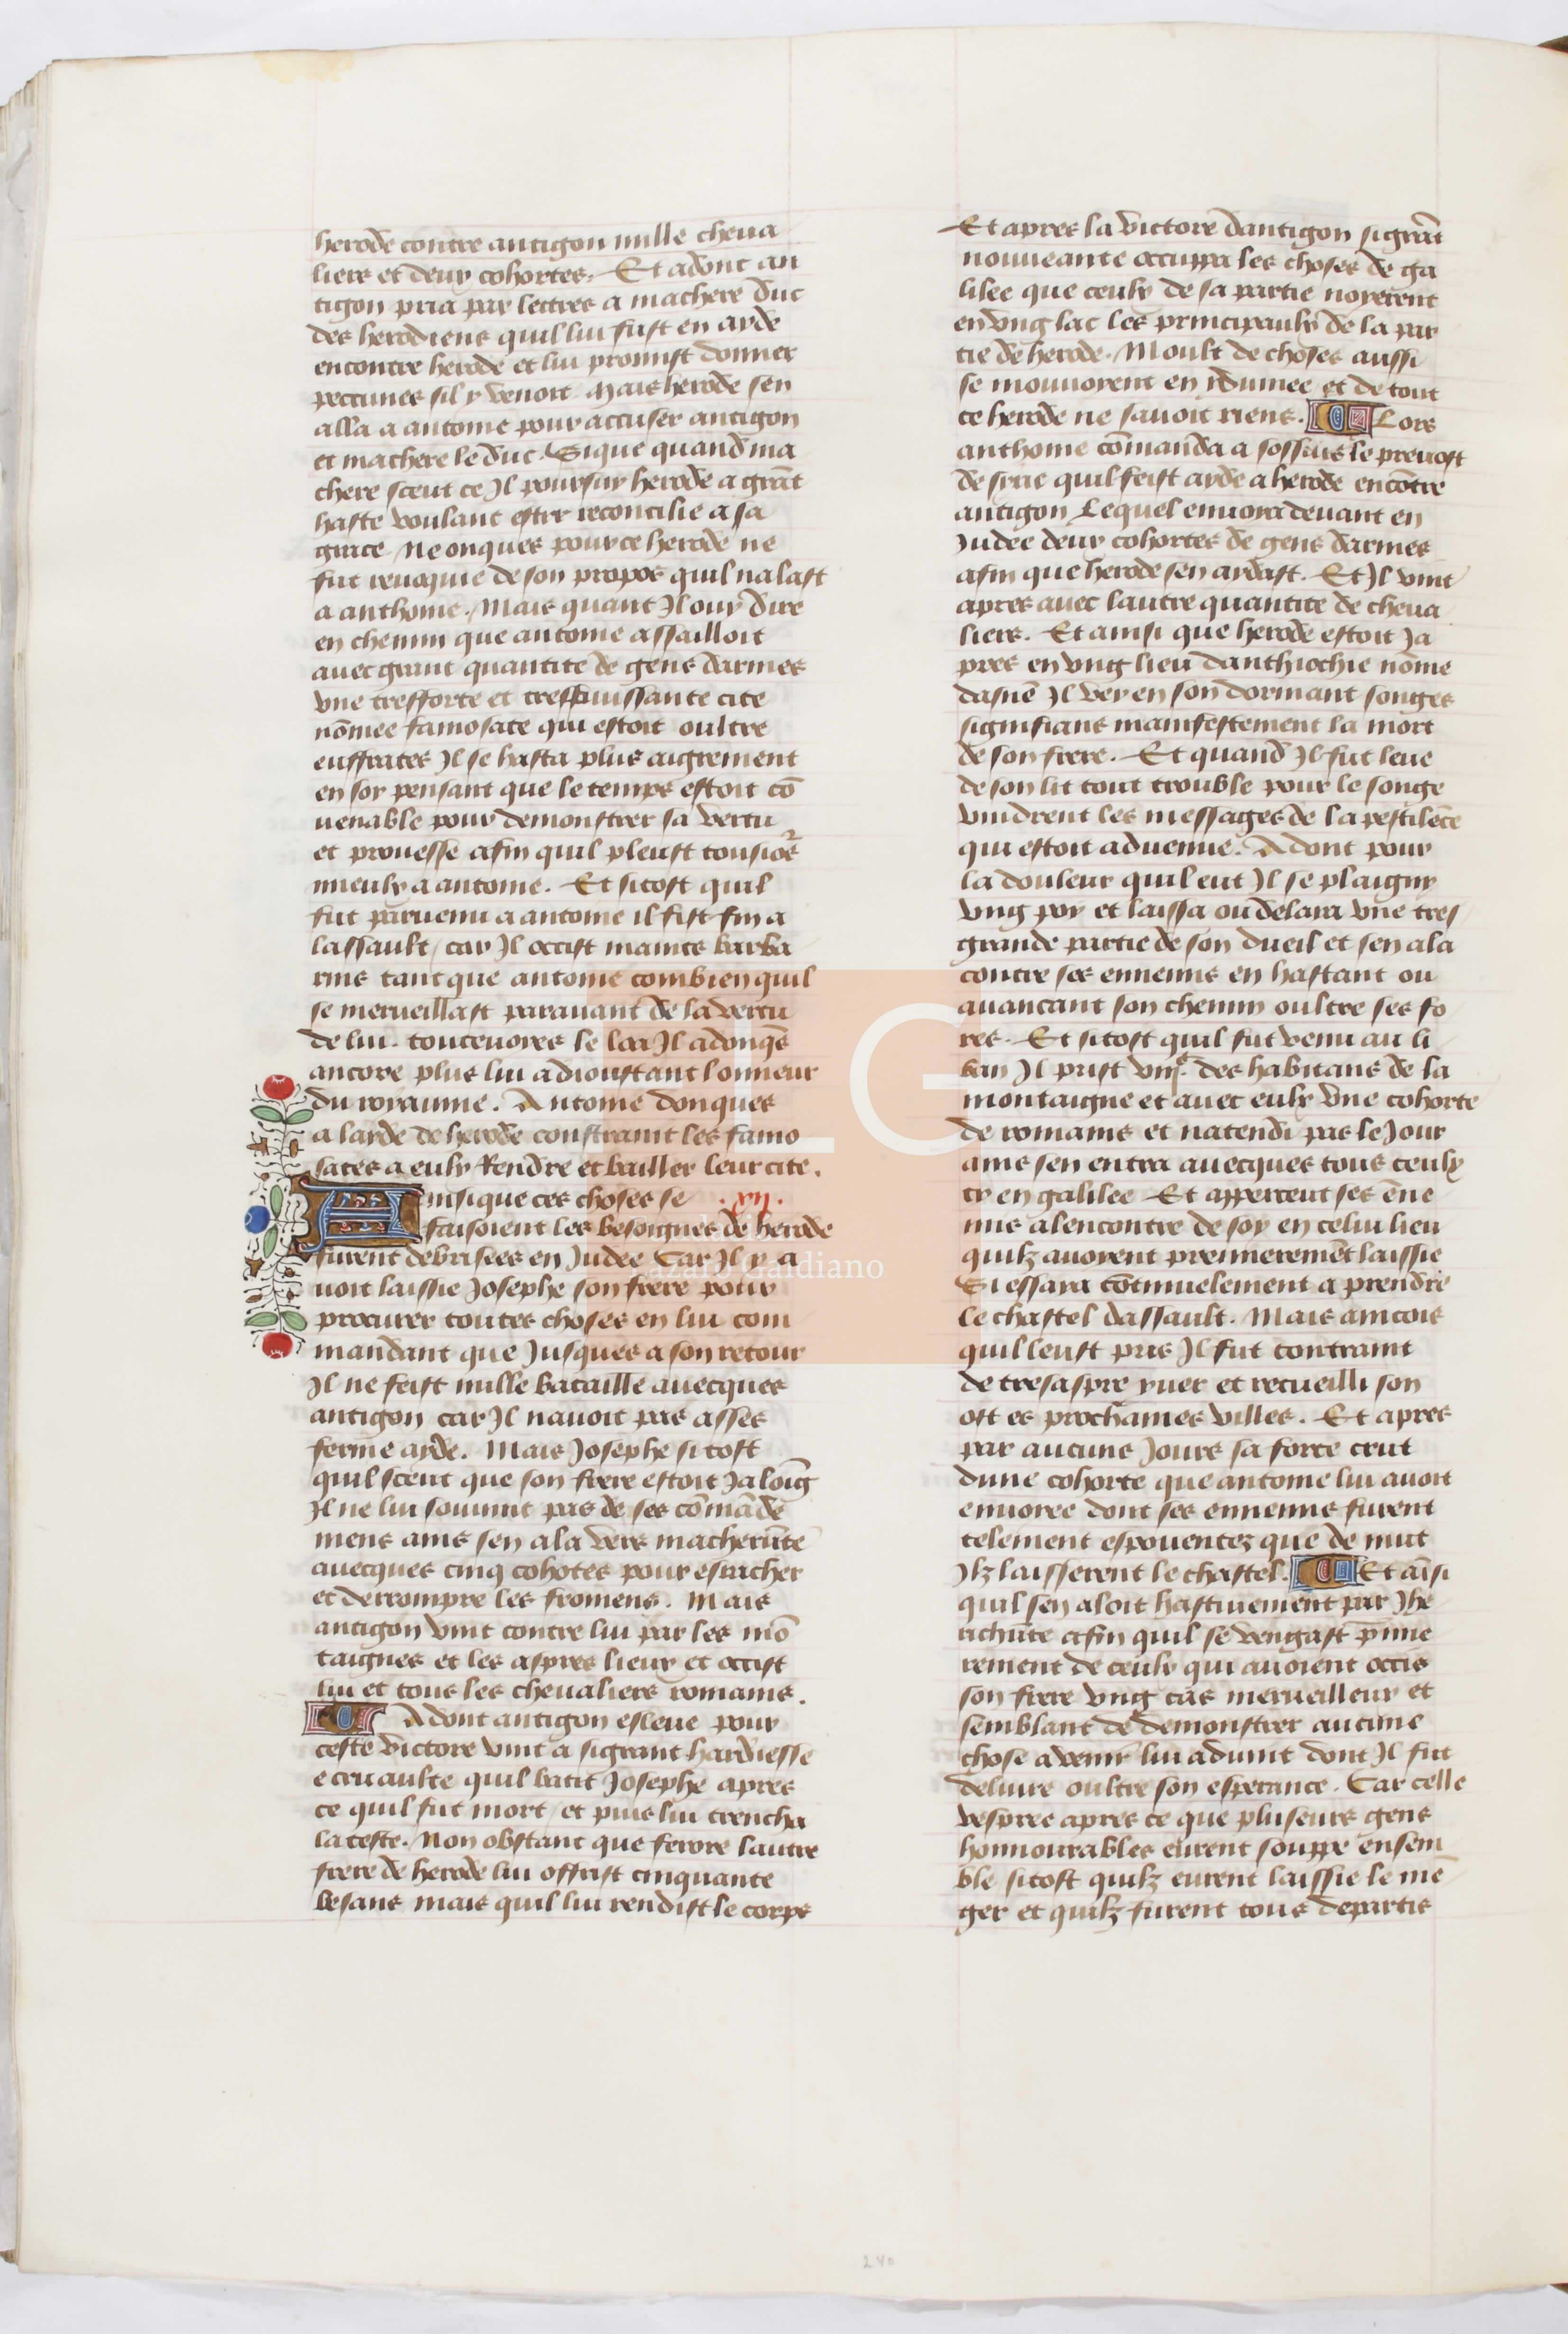 herode contre antigon mille cheua
liers et deux cohortes. Et adont an
tigon pria par lettres a machere duc
des herodiens quil lui fust en ayde
encontre herode et lui promist donner
peccunes sil y venoit Mais herode sen
alla a antoine pour accuser antigon
et machere le duc. Sique quand ma
chere sceut ce Il poursuy herode a grāt
haste voulant estre reconcilie a sa
grace Ne onques pour ce herode ne
fut reuoquie de son propos quil nalast
a anthoine. Mais quant Il ouy dire
en chemin que antoine assailloit
auec grant quantite de gens darmes
vne tresforte et trespuissante cite
nōmee samosate qui estoit oultre
euffrates Il se hasta plus aigrement
en soy pensant que le temps estoit cō
uenable pour demonstrer sa vertu
et prouesse afin quil pleust tousiors
mieulx a antoine. Et sitost quil
fut paruenu a antoine il fist fin a
lassault / car Il occist maints barba
rins tant que antoine combien quil
se merueillast parauant de la vertu
de lui. toutenoies le loa Il adonqs
ancore plus lui adioustant lonneur
du royaume. Antoine donques
a layde de herode constraint les samo
sates a eulx Rendre et bailler leur cite.
Ainsi que ces choses se .xii.
faisoient les besoignes de herode
furent debrisees en Judee Car Il y a
uoit laissie Josephe son frere pour
procurer toutes choses en lui com
mandant que Jusques a son retour
Il ne feist nulle bataille auecques
antigon car Il nauoit pas asses
ferme ayde. Mais Josephe si tost
quil sceut que son frere estoit Ja loīg
Il ne lui souuint pas de ses cōmāde
mens ains sen ala vers macherūte
auecques cinq cohotes pour esracher
et derrompre les fromens. Mais
antigon vint contre lui par les mō
taignes et les aspres lieux et occist
lui et tous les cheualiers romains.
Adont antigon esleue pour
ceste victore vint a si grant hardiesse
e cruaulte quil batit Josephe apres
ce quil fut mort / et puis lui trencha
la teste. Non obstant que ferore lautre
frere de herode lui offrist cinquante
besans mais quil lui rendist le corps
Et apres la victore dantigon si grāt
nouueaute occuppa les choses de ga
lilee que ceulx de sa partie noyerent
en vng lac les principaulx de la par
tie de herode. Moult de choses aussi
se mouuoyent en ydumee et de tout
ce herode ne sauoit riens. Lors
anthoine cōmanda a sossius le preuost
de syrie quil feist ayde a herode encōtre
antigon Lequel enuoia deuant en
Judee deux cohortes de gens darmes
afin que herode sen aydast. Et Il vint
apres auec lautre quantite de cheua
liers. Et ainsi que herode estoit Ja
pres en vng lieu danthiochie nōme
dasnē Il vey en son dormant songes
signifians manifestement la mort
de son frere. Et quand Il fut leue
de son lit tout trouble pour le songe
vindrent les messages de la pestilēce
qui estoit aduenue. Adont pour
la douleur quil eut Il se plaigny
vng poy et laissa ou delaia vne tres
grande partie de son dueil et sen ala
contre ses ennemis en hastant ou
auancant son chemin oultre ses fo
res. Et sitost quil fut venu au li
ban Il prist viiiᶜ. des habitans de la
montaigne et auec eulx vne cohorte
de romains et natendi pas le Jour
ains sen entra auecques tous ceulx
cy en galilee Et appercent ses ēne
mis alencontre de soy en celui lieu
quilz auoyent premieremēt laissie
Si essaia cōtinuelement a prendre
le chastel dassault. Mais aincois
quil leust pris Il fut contraint
de tresaspre yuer et recueilli son
ost es prochaines villes. Et apres
par aucuns Jours sa force crut
dune cohorte que antoine lui auoit
enuoiee dont ses ennemis furent
telement espouentez que de nuit
Ilz laisserent le chastel. Et aīsi
quil sen aloit hastiuement par Jhe
richūte afin quil se vengast p̄mie
rement de ceulx qui auoient occis
son frere vng cas merueilleux et
semblant de demonstrer aucune
chose aduenir lui aduint dont Il fut
deliure oultre son esperance. Car celle
vespree apres ce que pluseurs gens
honnourables eurent souppe ensem
ble sitost quilz eurent laissie le mē
ger et quilz furent tous departis
LG
Lázaro Galdiano
240